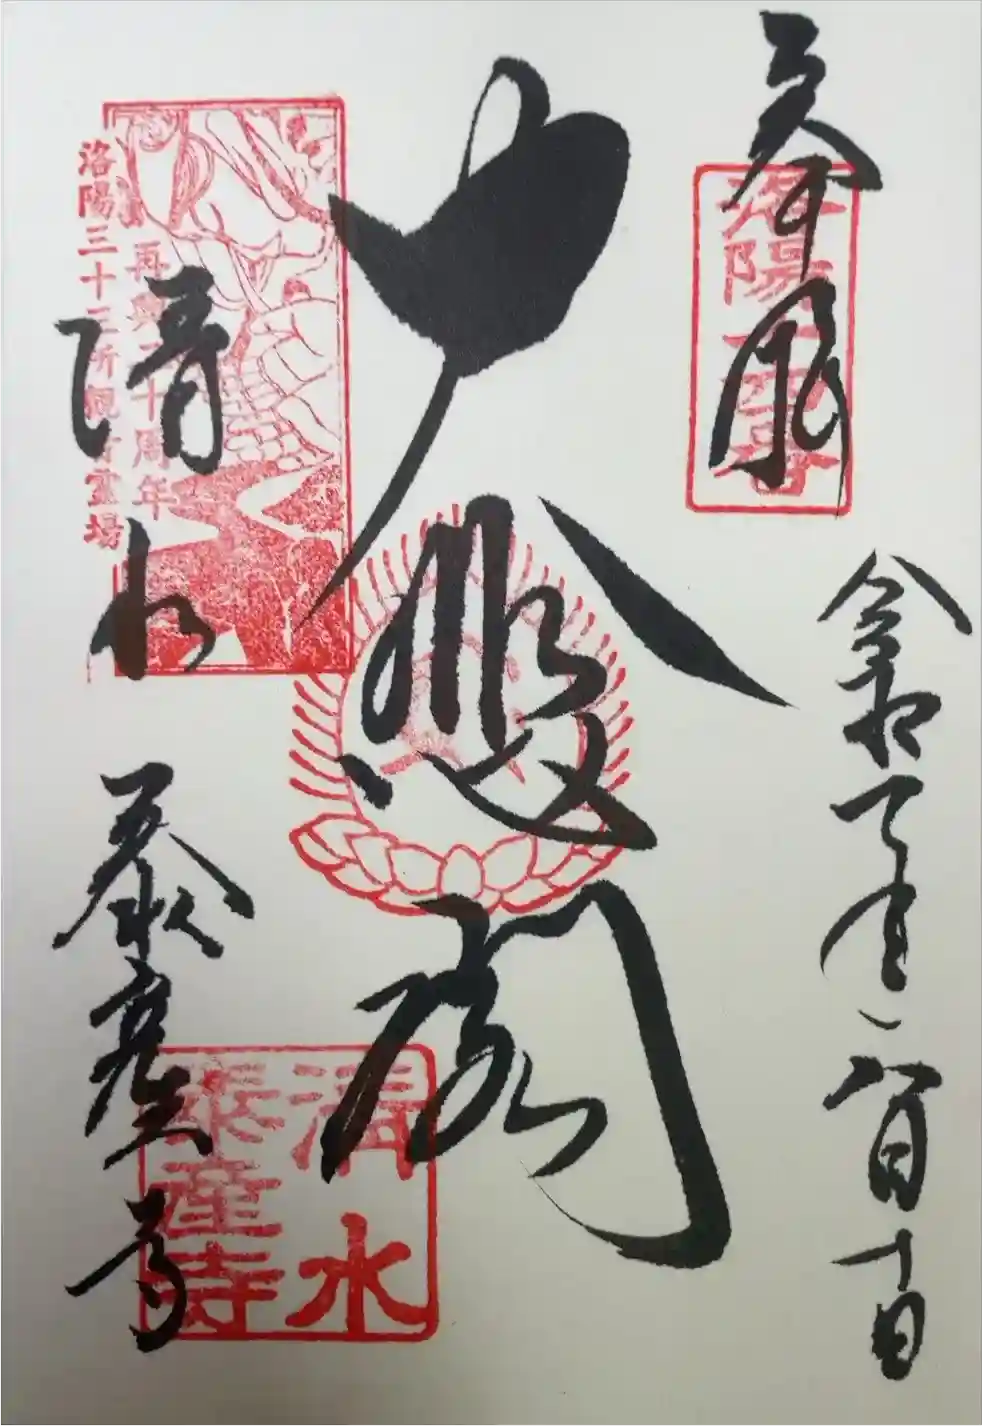 奉拝
洛陽十四番
令和元年八月十日
大悲閣
清水
泰産寺
再興十周年
洛陽三十三所観音霊場
清水
泰産寺